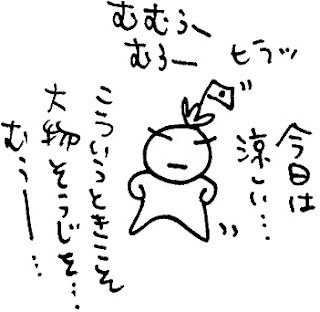 むむぅ〜
むぅー
ヒラッ
今日は
涼しい…
こういうときこそ
大物そうじを…
むぅー…